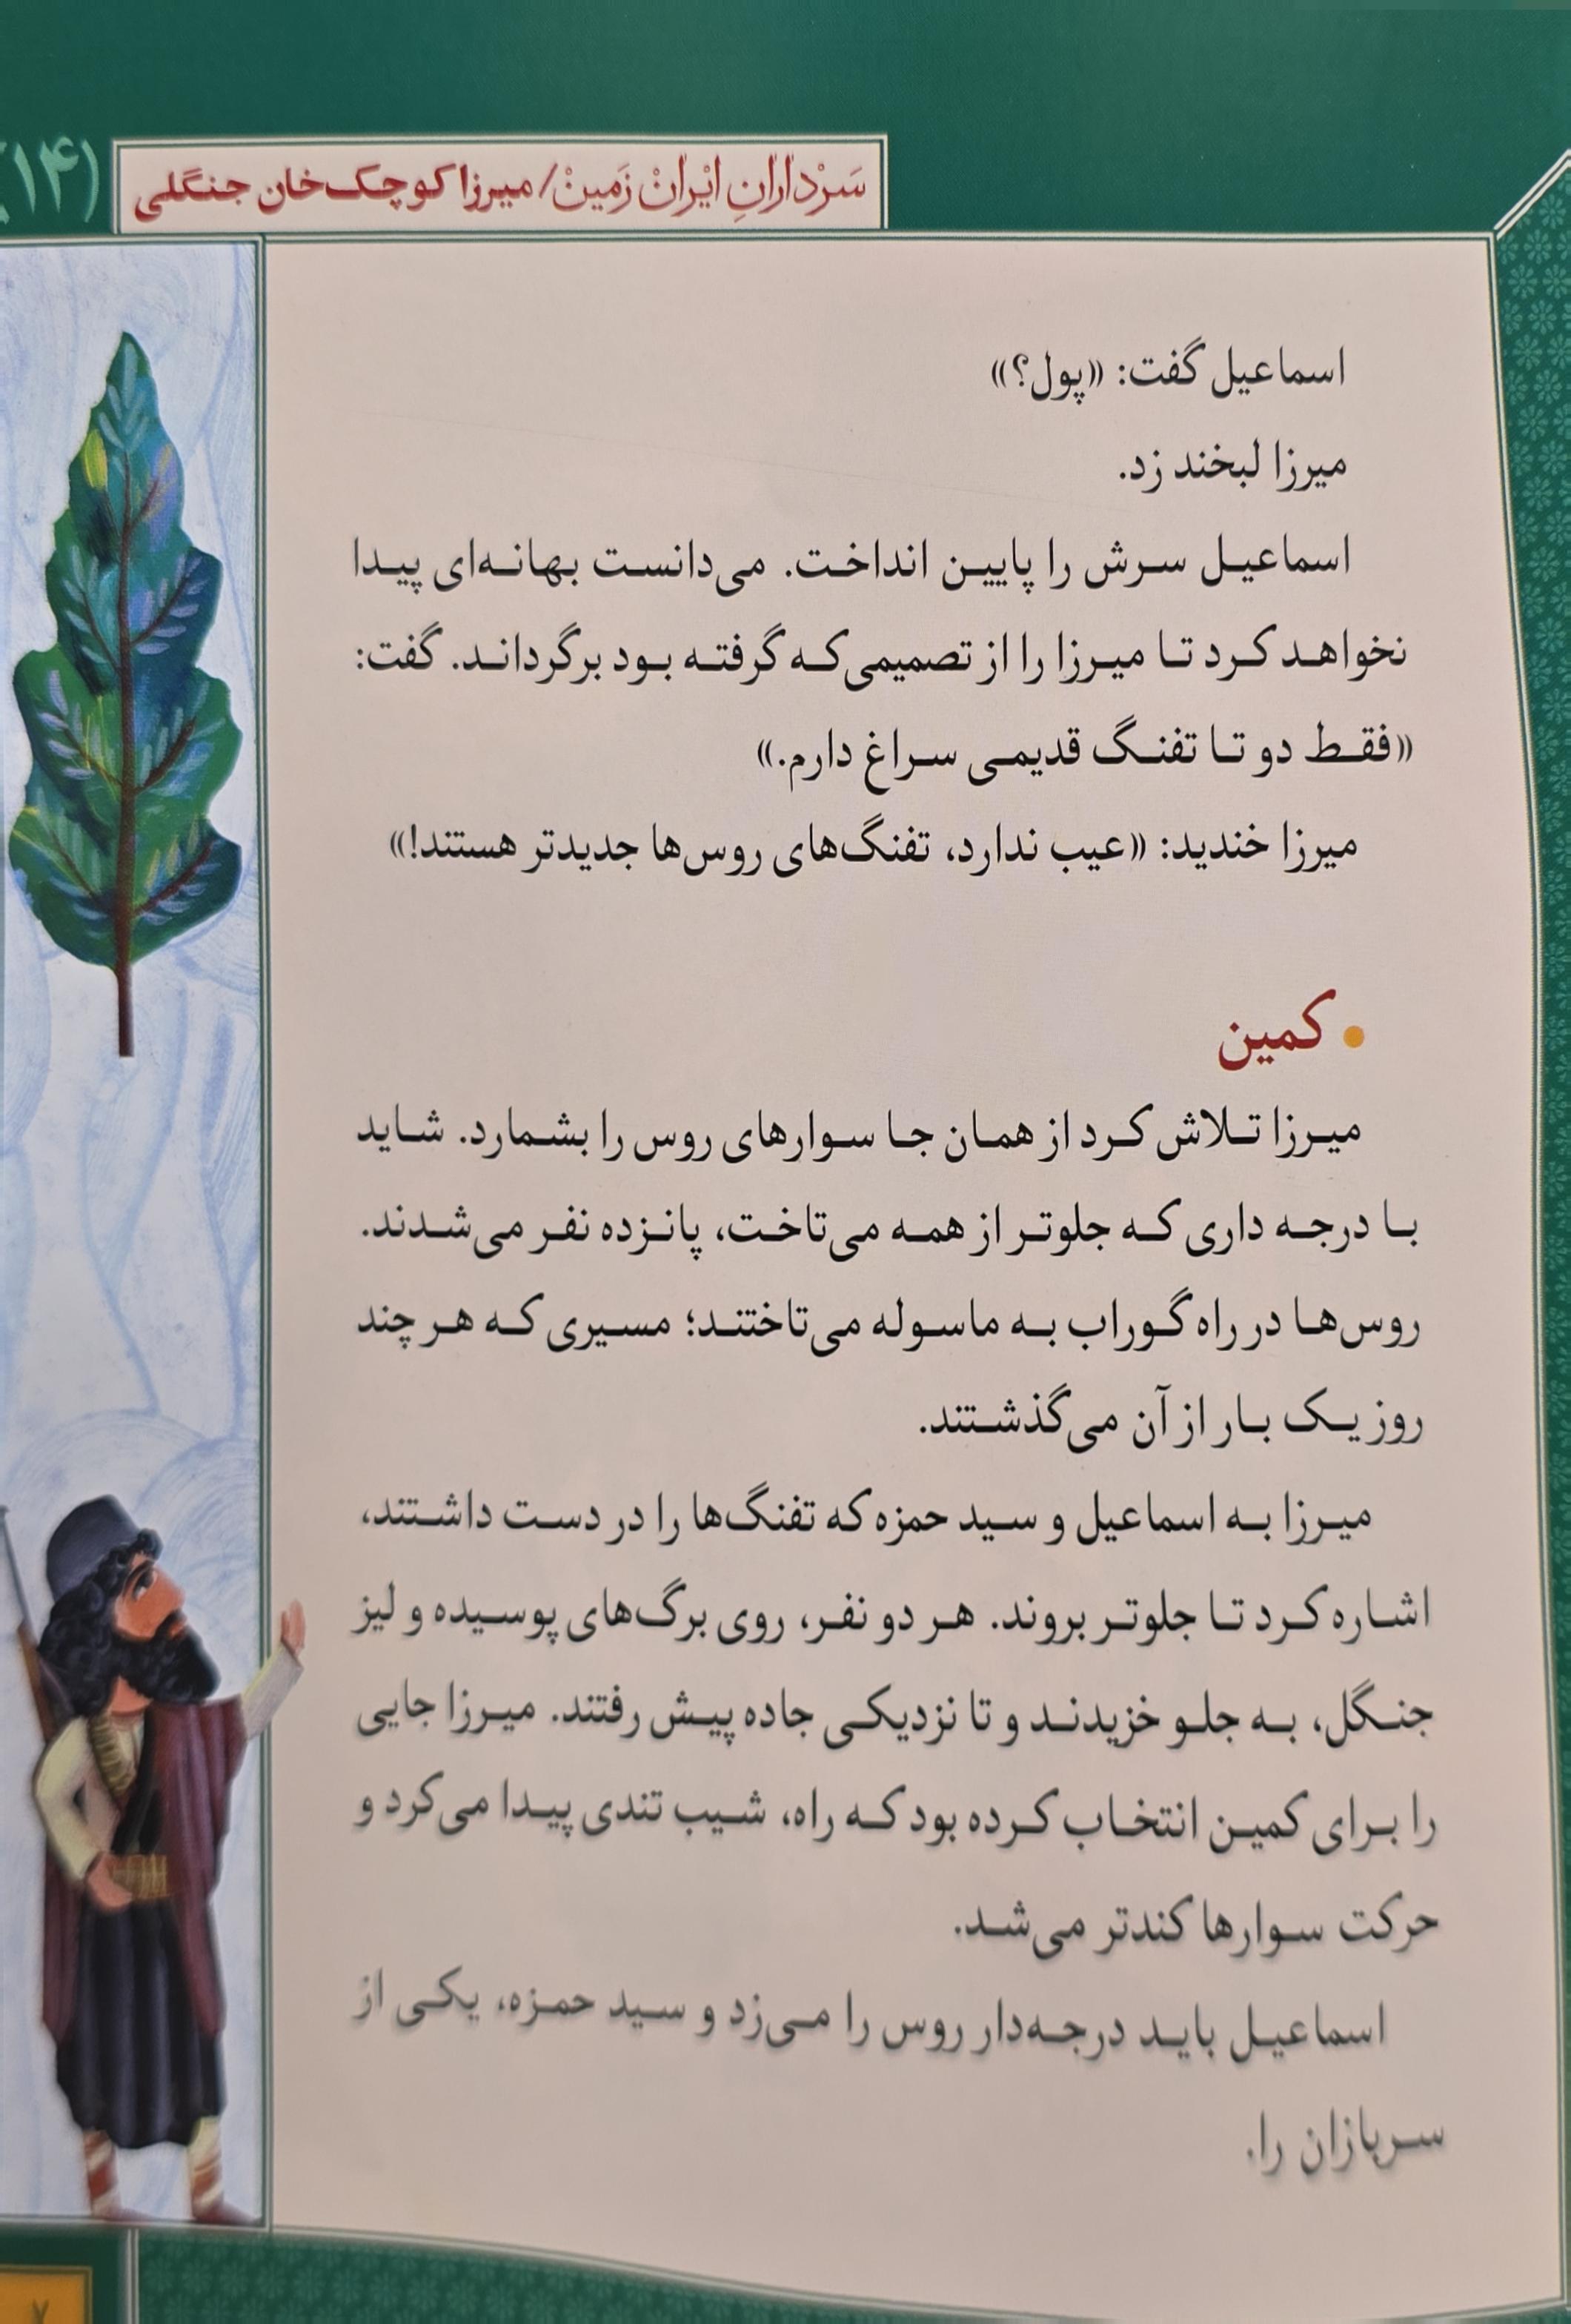 سَرْدارانِ ایْرانْ زَمینْ/ میرزا کوچک‌خان جنگلی
(۱۴
اسماعیل گفت: «پول؟»
میرزا لبخند زد.
اسماعیل سرش را پایین انداخت. می‌دانست بهانه‌ای پیدا
نخواهد کرد تا میرزا را از تصمیمی‌که گرفته بود برگرداند. گفت:
«فقط دو تا تفنگ قدیمی سراغ دارم.»
میرزا خندید: «عیب ندارد، تفنگ‌های روس‌ها جدیدتر هستند!»
• کمین
میرزا تلاش کرد از همان جا سوارهای روس را بشمارد. شاید
با درجه داری که جلوتر از همه می‌تاخت، پانزده نفر می‌شدند.
روس‌ها در راه گوراب به ماسوله می‌تاختند؛ مسیری که هر چند
روز یک بار از آن می‌گذشتند.
میرزا به اسماعیل و سید حمزه که تفنگ‌ها را در دست داشتند،
اشاره کرد تا جلوتر بروند. هر دو نفر، روی برگ‌های پوسیده و لیز
جنگل، به جلو خزیدند و تا نزدیکی جاده پیش رفتند. میرزا جایی
را برای کمین انتخاب کرده بود که راه، شیب تندی پیدا می‌کرد و
حرکت سوارها کندتر می‌شد.
اسماعیل باید درجه‌دار روس را می‌زد و سید حمزه، یکی از
سربازان را.
۷